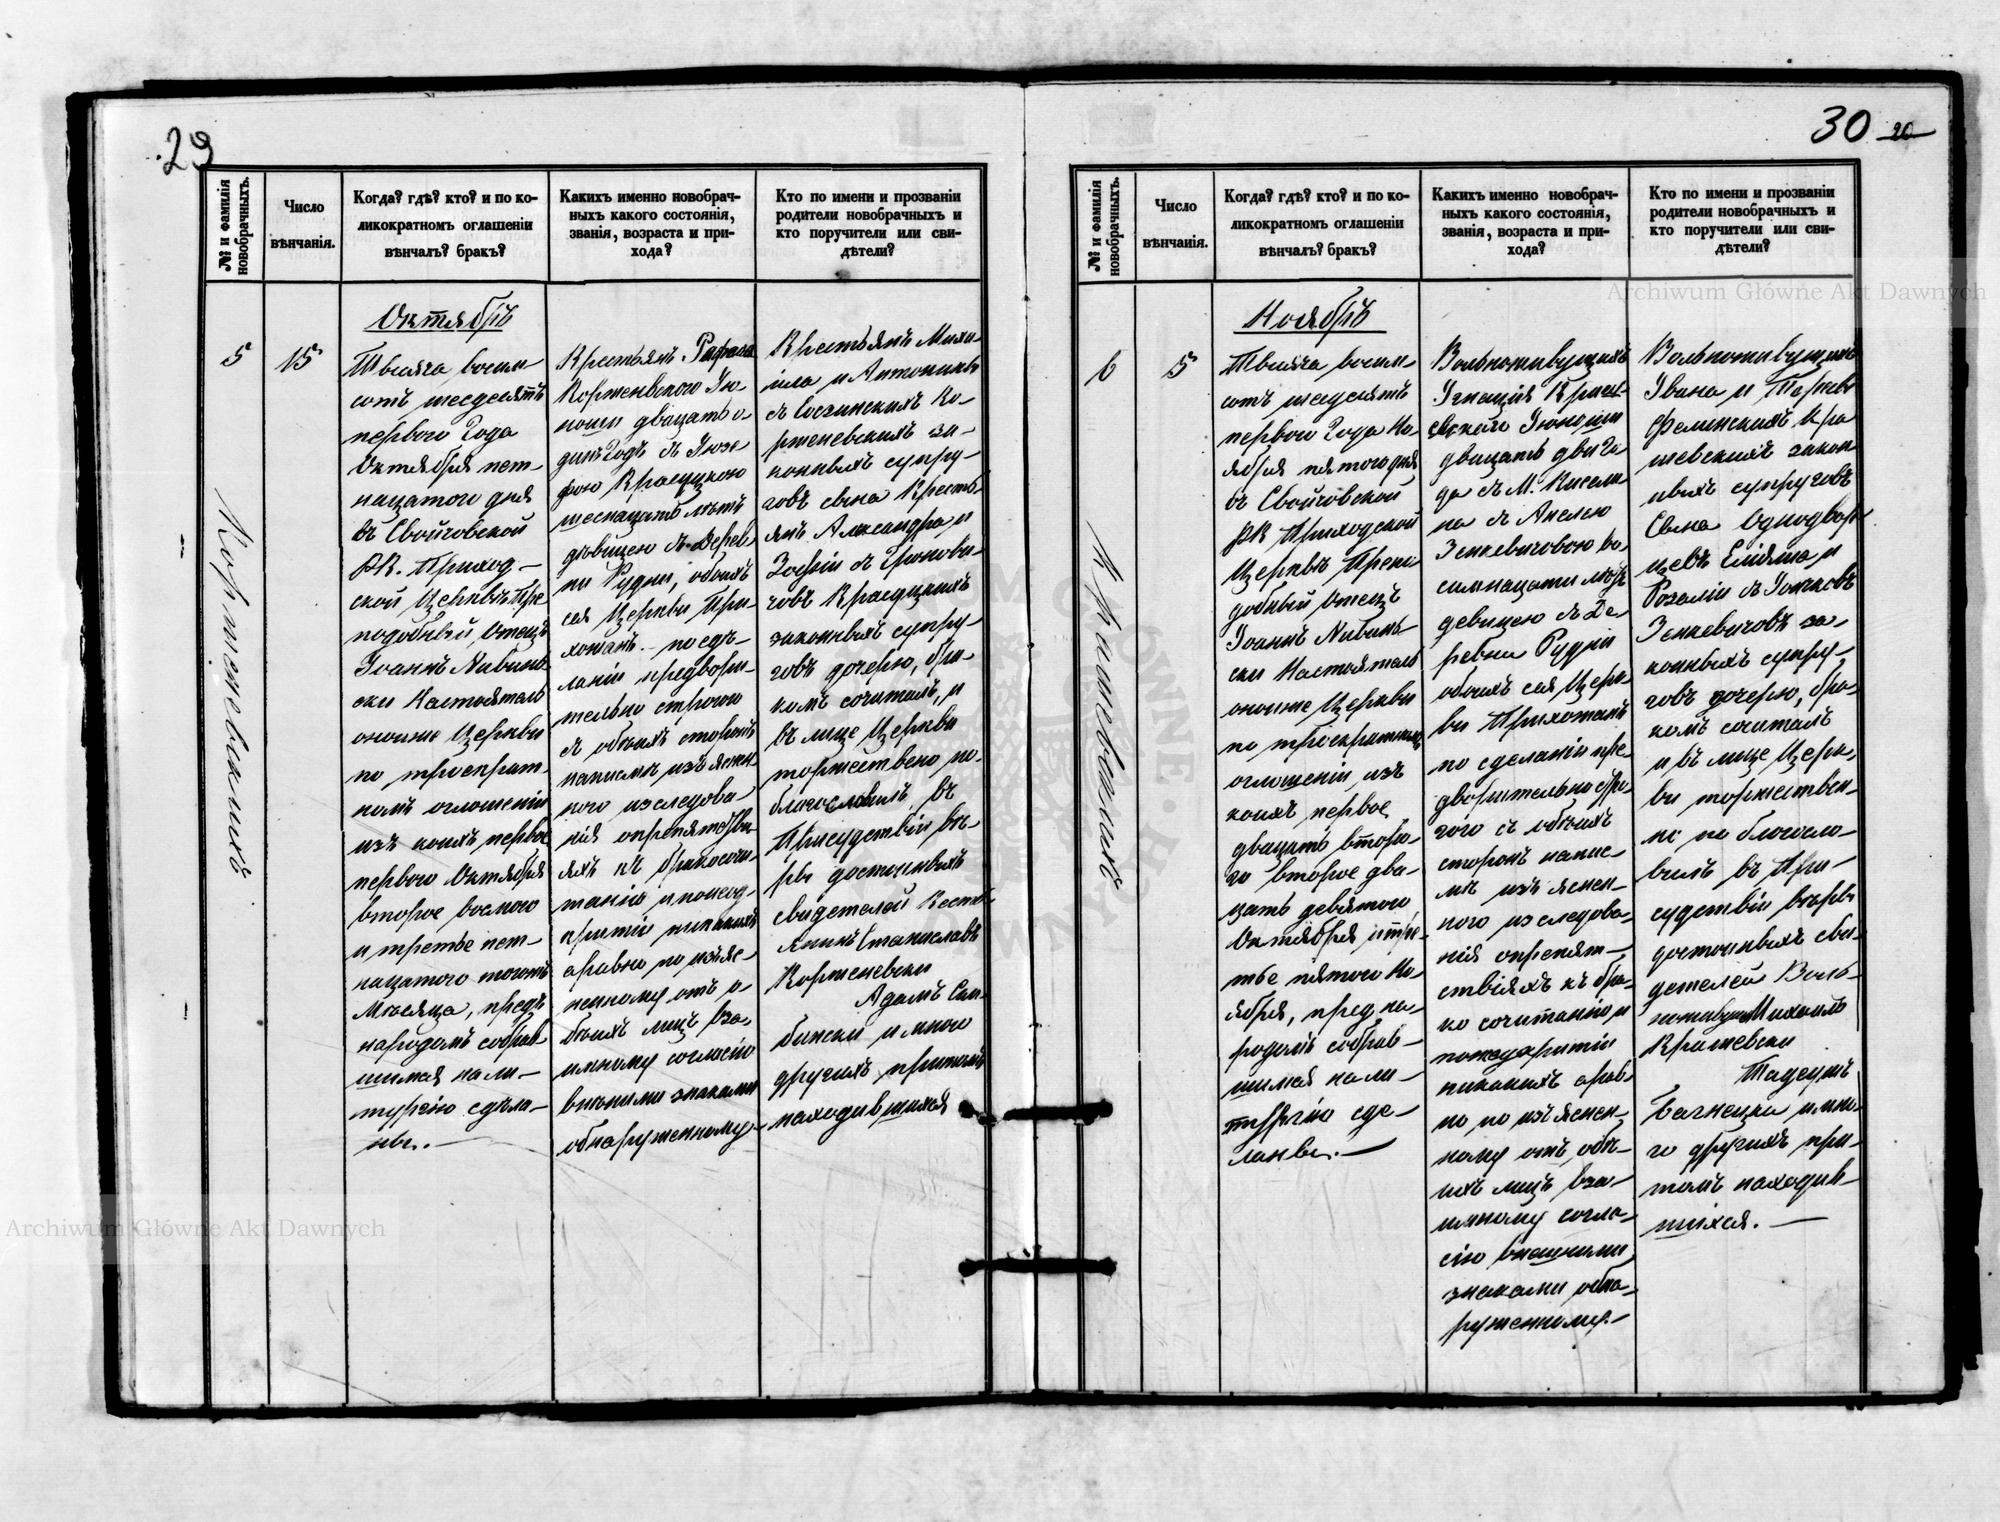 29
№ и фамилія новобрачныхъ.
Число вѣнчанія.
Когда? гдѣ? кто? и по ко-
ликократномъ оглашеніи
вѣнчалъ? бракъ?
Какихъ именно новобрач-
ныхъ какого состоянія,
званія, возраста и при-
хода?
Кто по имени и прозваніи
родители новобрачныхъ и
кто поручители или сви-
дѣтели?
5
15
Корженевскихъ
Октябрь
Тысяча восем-
сотъ шесдесятъ
первого Года
Октября пет-
нацатого дня
въ Свойчовской
РК. Приход-
ской Церквѣ Пре
подобный Отецъ
Іоаннъ
ски Настоятель
оноиже Церкви
по троекрат-
номъ оглошеніи
изъ коихъ первое
первого Октября
второе восмого
и третье пет-
нацатого тогожъ
Мѣсяца, предъ
народомъ собрав
шимся на ли-
тургію сдѣла-
ны.-
Крестьянъ Рафала
Корженевского Ю-
ноши двацать о-
динъ Годъ съ Юзе
фою Красуцкою
шеснацать лѣтъ
дѣвицею съ Дерев
ни Рудни, обоихъ
сея Церкви При-
хожанъ - по сдѣ-
ланіи предвори-
тельно строгого
съ обоихъ сторонъ
написмѣ изъясне
ного изследова
нія опрепятстви
яхъ къ бракосочи-
танію и понеод-
крытіи никакихъ
аравно по изъяс-
ненному отъ о-
боихъ лицъ вза-
имному согласію
внѣшними знаками
обнаруженному-
Крестьянъ Миха-
іла и Антонины
съ Косчинскихъ Ко-
рженевскихъ за-
конныхъ супру-
говъ сына Кресть-
янъ Александра и
Зофіи съ Гронови-
човъ Красуцкихъ
законныхъ супру-
говъ дочерю, бра-
комъ сочиталъ, и
въ лице Церкви
торжествено по-
благословилъ въ
Присудствіи вѣ-
ры достоиныхъ
свидетелей Кресть
янинъ Станиславъ
Корженевски
Адамъ
и много
другихъ притомъ
находившихся
30 20
№ и фамилія новобрачныхъ.
Число вѣнчанія.
Когда? гдѣ? кто? и по ко-
ликократномъ оглашеніи
вѣнчалъ? бракъ?
Какихъ именно новобрач-
ныхъ какого состоянія,
званія, возраста и при-
хода?
Кто по имени и прозваніи
родители новобрачныхъ и
кто поручители или сви-
дѣтели?
6
5
Крашевскихъ
Ноябрь
Тысяча восем-
сотъ шедесятъ
первого Года Но
ября пятого дня
въ Свойчовской
РК Приходской
Церквѣ Препо
добный Отецъ
Іоаннъ
ски Настоятель
оноиже Церкви
по троекратномъ
оглошеніи, изъ
коихъ первое
двацать второ-
го второе два-
цать девятого
Октября итре-
тье пятого Но-
ября, пред на-
родомъ собрав-
шимся на ли-
тургію сде-
ланы.-
Вольноживущихъ
Игнація Краше-
вского Юноши
двацать два го
да съ М. Кисели
на съ Анелею
Зенкевичовою во-
симнацати лѣтъ
девицею съ Де-
ревни Рудни
обоихъ сея Церк-
ви Прихожанъ
по сделаніи пре-
дворительно стро-
гого съ обоихъ
сторонъ напис-
мѣ изъяснен-
ного изследова-
нія опрепят-
ствіяхъ къ бра-
ко сочитанію и
понеодкрытіи
никакихъ арав-
но по изъяснен-
ному отъ обо-
ихъ лицъ вза-
имному согла-
сію внѣшними
знаками обна-
руженному.-
Вольноживущихъ
Ивана и
Фелинскихъ Кра
шевскихъ закон
ныхъ супруговъ
Сына Однодвор-
цевъ и
Розаліи съ
Зенкевичовъ за-
конныхъ супру-
говъ дочерю, бра-
комъ сочиталъ
и въ лице Церк-
ви торжествен-
но по благосло-
вилъ въ При-
судствіи вѣры
достоиныхъ сви-
детелей Воль-
ноживущ Михаилъ
Крашевски
Тадеушъ
и мно-
го другихъ при-
томъ находив-
шихся.-
Archiwum Główne Akt Dawnych
Archiwum Główne Akt Dawnych